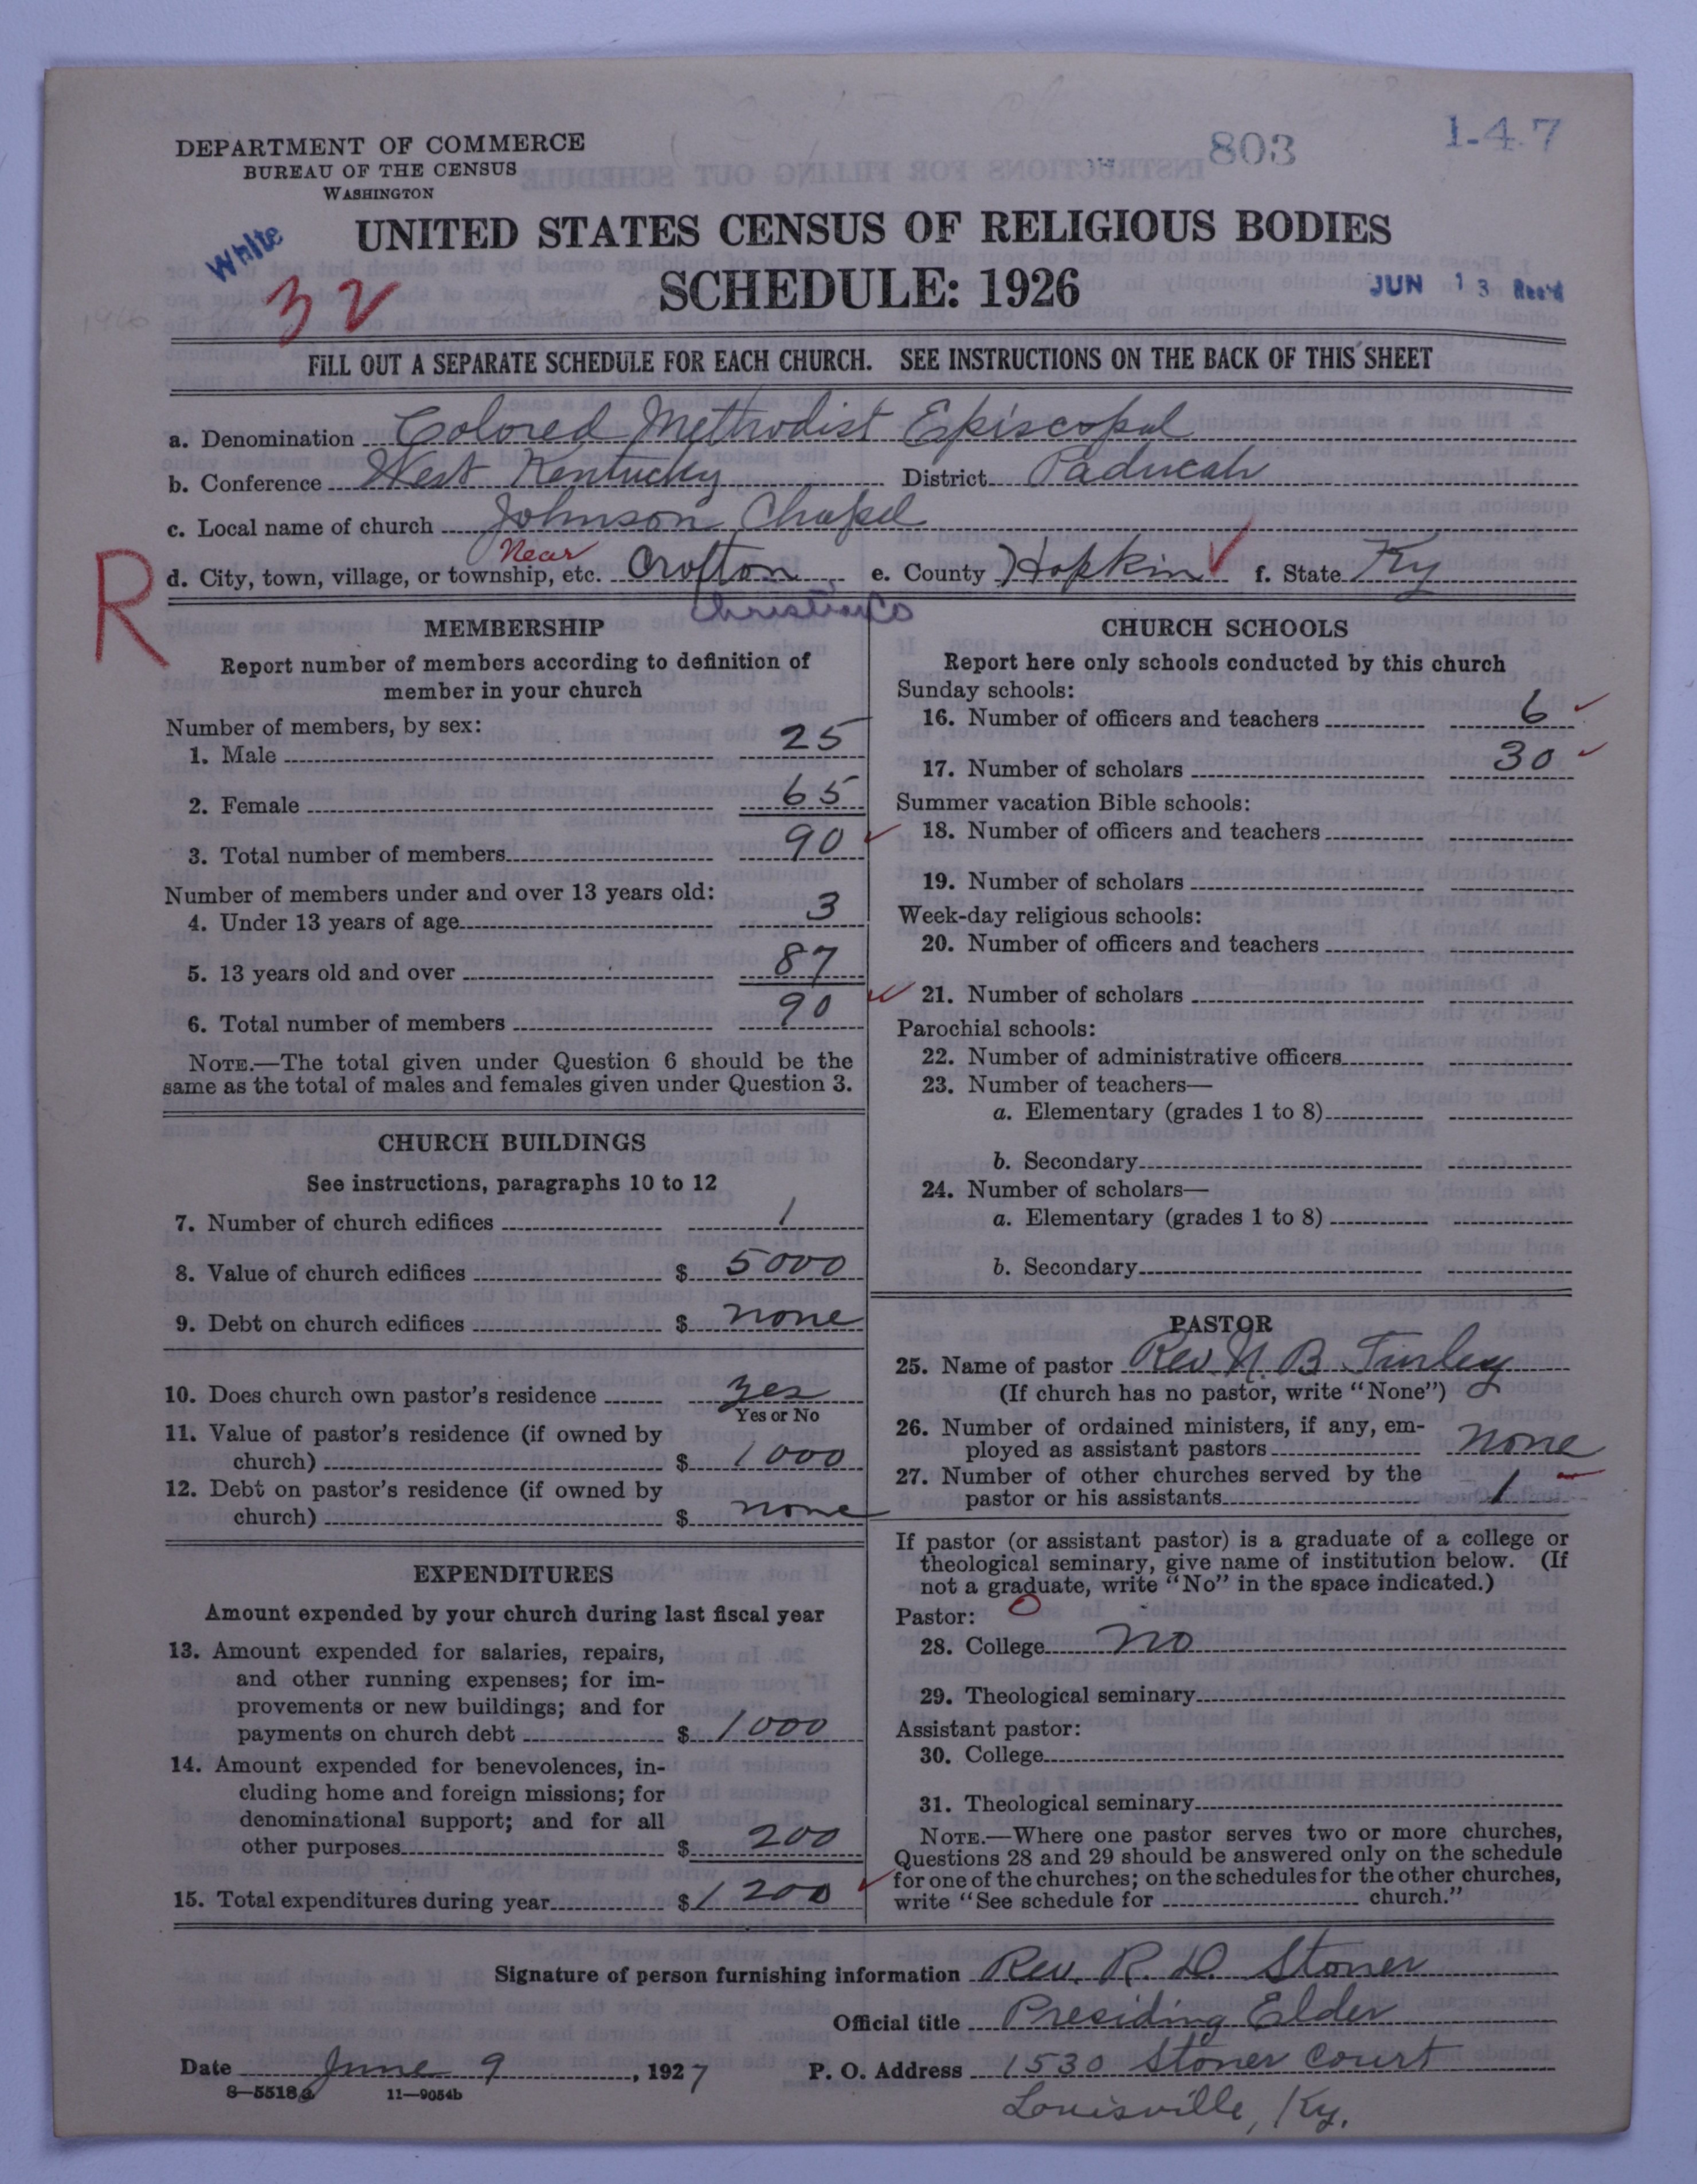 803
1-4-7
DEPARTMENT OF COMMERCE
BUREAU OF THE CENSUS
WASHINGTON
White
32
UNITED STATES CENSUS OF RELIGIOUS BODIES
SCHEDULE: 1926
JUN 13 Rec'd
FILL OUT A SEPARATE SCHEDULE FOR EACH CHURCH. SEE INSTRUCTIONS ON THE BACK OF THIS SHEET
a. Denomination Colored Methodist Episcopal
b. Conference West Kentucky District Paducah
c. Local name of church Johnson Chapel
R
d. City, town, village, or township, etc. Near Crofton e. County Hopkin f. State Ky
Christian Co
MEMBERSHIP
Report number of members according to definition of
member in your church
Number of members, by sex:
1. Male 25
2. Female 65
3. Total number of members 90
Number of members under and over 13 years old:
4. Under 13 years of age 3
5. 13 years old and over 87
6. Total number of members 90
NOTE.—The total given under Question 6 should be the
same as the total of males and females given under Question 3.
CHURCH BUILDINGS
See instructions, paragraphs 10 to 12
7. Number of church edifices 1
8. Value of church edifices $ 5000
9. Debt on church edifices $ none
10. Does church own pastor's residence yes
Yes or No
11. Value of pastor's residence (if owned by
church) $ 1000
12. Debt on pastor's residence (if owned by
church) $ none
EXPENDITURES
Amount expended by your church during last fiscal year
13. Amount expended for salaries, repairs,
and other running expenses; for im-
provements or new buildings; and for
payments on church debt $ 1000
14. Amount expended for benevolences, in-
cluding home and foreign missions; for
denominational support; and for all
other purposes $ 200
15. Total expenditures during year $ 1200
CHURCH SCHOOLS
Report here only schools conducted by this church
Sunday schools:
16. Number of officers and teachers 6
17. Number of scholars 30
Summer vacation Bible schools:
18. Number of officers and teachers
19. Number of scholars
Week-day religious schools:
20. Number of officers and teachers
21. Number of scholars
Parochial schools:
22. Number of administrative officers
23. Number of teachers—
a. Elementary (grades 1 to 8)
b. Secondary
24. Number of scholars—
a. Elementary (grades 1 to 8)
b. Secondary
PASTOR
25. Name of pastor Rev. N. B. Turley
(If church has no pastor, write "None")
26. Number of ordained ministers, if any, em-
ployed as assistant pastors none
27. Number of other churches served by the
pastor or his assistants 1
If pastor (or assistant pastor) is a graduate of a college or
theological seminary, give name of institution below. (If
not a graduate, write "No" in the space indicated.)
Pastor:
28. College no
29. Theological seminary
Assistant pastor:
30. College
31. Theological seminary
NOTE.—Where one pastor serves two or more churches,
Questions 28 and 29 should be answered only on the schedule
for one of the churches; on the schedules for the other churches,
write "See schedule for church."
Signature of person furnishing information Rev. R. D. Stoner
Official title Presiding Elder
Date June 9, 1927 P. O. Address 1530 Stoner Court
8-5518a 11-9054b
Louisville, Ky.